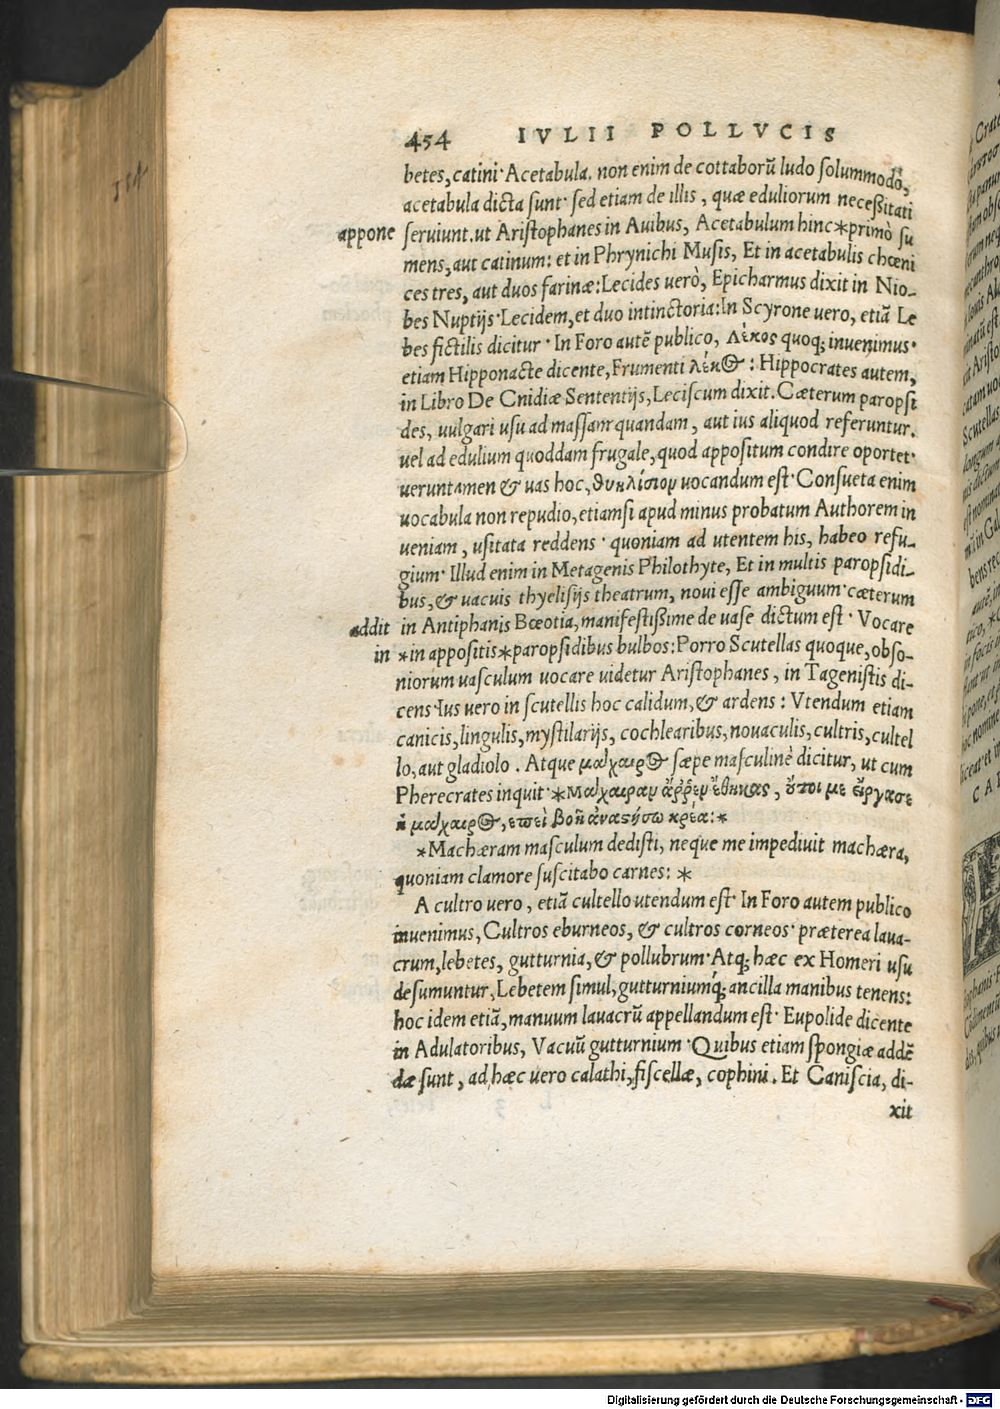 454 IVLII POLLVCIS
betes, catini· Acetabula. non enim de cottaborũ ludo solummodò,
acetabula dicta sunt· sed etiam de illis, quæ eduliorum necessitati
appone seruiunt. ut Aristophanes in Auibus, Acetabulum hinc*primò su
mens, aut catinum: et in Phrynichi Musis, Et in acetabulis chœni
ces tres, aut duos farinæ: Lecides uerò, Epicharmus dixit in Nio-
bes Nuptijs· Lecidem, et duo intinctoria: In Scyrone uero, etiã Le
bes fictilis dicitur· In Foro autẽ publico, Λέκος quoq; inuenimus·
etiam Hipponacte dicente, Frumenti λέκος: Hippocrates autem,
in Libro De Cnidiæ Sententijs, Leciscum dixit. Cæterum paropsi
des, uulgari usu ad massam quandam, aut ius aliquod referuntur.
uel ad edulium quoddam frugale, quod appositum condire oportet·
ueruntamen & uas hoc, uocandum est· Consueta enim
uocabula non repudio, etiamsi apud minus probatum Authorem in
ueniam, usitata reddens· quoniam ad utentem his, habeo refu-
gium· Illud enim in Metagenis Philothyte, Et in multis paropsidi-
bus, & uacuis thyelisijs theatrum, noui esse ambiguum· cæterum
addit in Antiphanis Bœotia, manifestissime de uase dictum est· Vocare
in *in appositis*paropsidibus bulbos: Porro Scutellas quoque, obso-
niorum uasculum uocare uidetur Aristophanes, in Tagenistis di-
cens· Ius uero in scutellis hoc calidum, & ardens: Vtendum etiam
canicis, lingulis, mystilarijs, cochlearibus, nouaculis, cultris, cultel
lo, aut gladiolo. Atque μάχαιρος sæpe masculinè dicitur, ut cum
Pherecrates inquit· *Μάχαιραν ἄῤῥεν ἔθηκας, με εἴργασε
ἡ μάχαιρος, ἐπεὶ βοῇ ἀναστήσω κρέα:*
*Machæram masculum dedisti, neque me impediuit machæra,
quoniam clamore suscitabo carnes: *
A cultro uero, etiã cultello utendum est· In Foro autem publico
inuenimus, Cultros eburneos, & cultros corneos· præterea laua-
crum, lebetes, gutturnia, & pollubrum· Atq; hæc ex Homeri usu
desumuntur, Lebetem simul, gutturniumq́; ancilla manibus tenens:
hoc idem etiã, manuum lauacrũ appellandum est· Eupolide dicente
in Adulatoribus, Vacuũ gutturnium· Quibus etiam spongiæ addẽ
dæ sunt, ad hæc uero calathi, fiscellæ, cophini. Et Caniscia, di-
xit
Digitalisierung gefördert durch die Deutsche Forschungsgemeinschaft - DFG